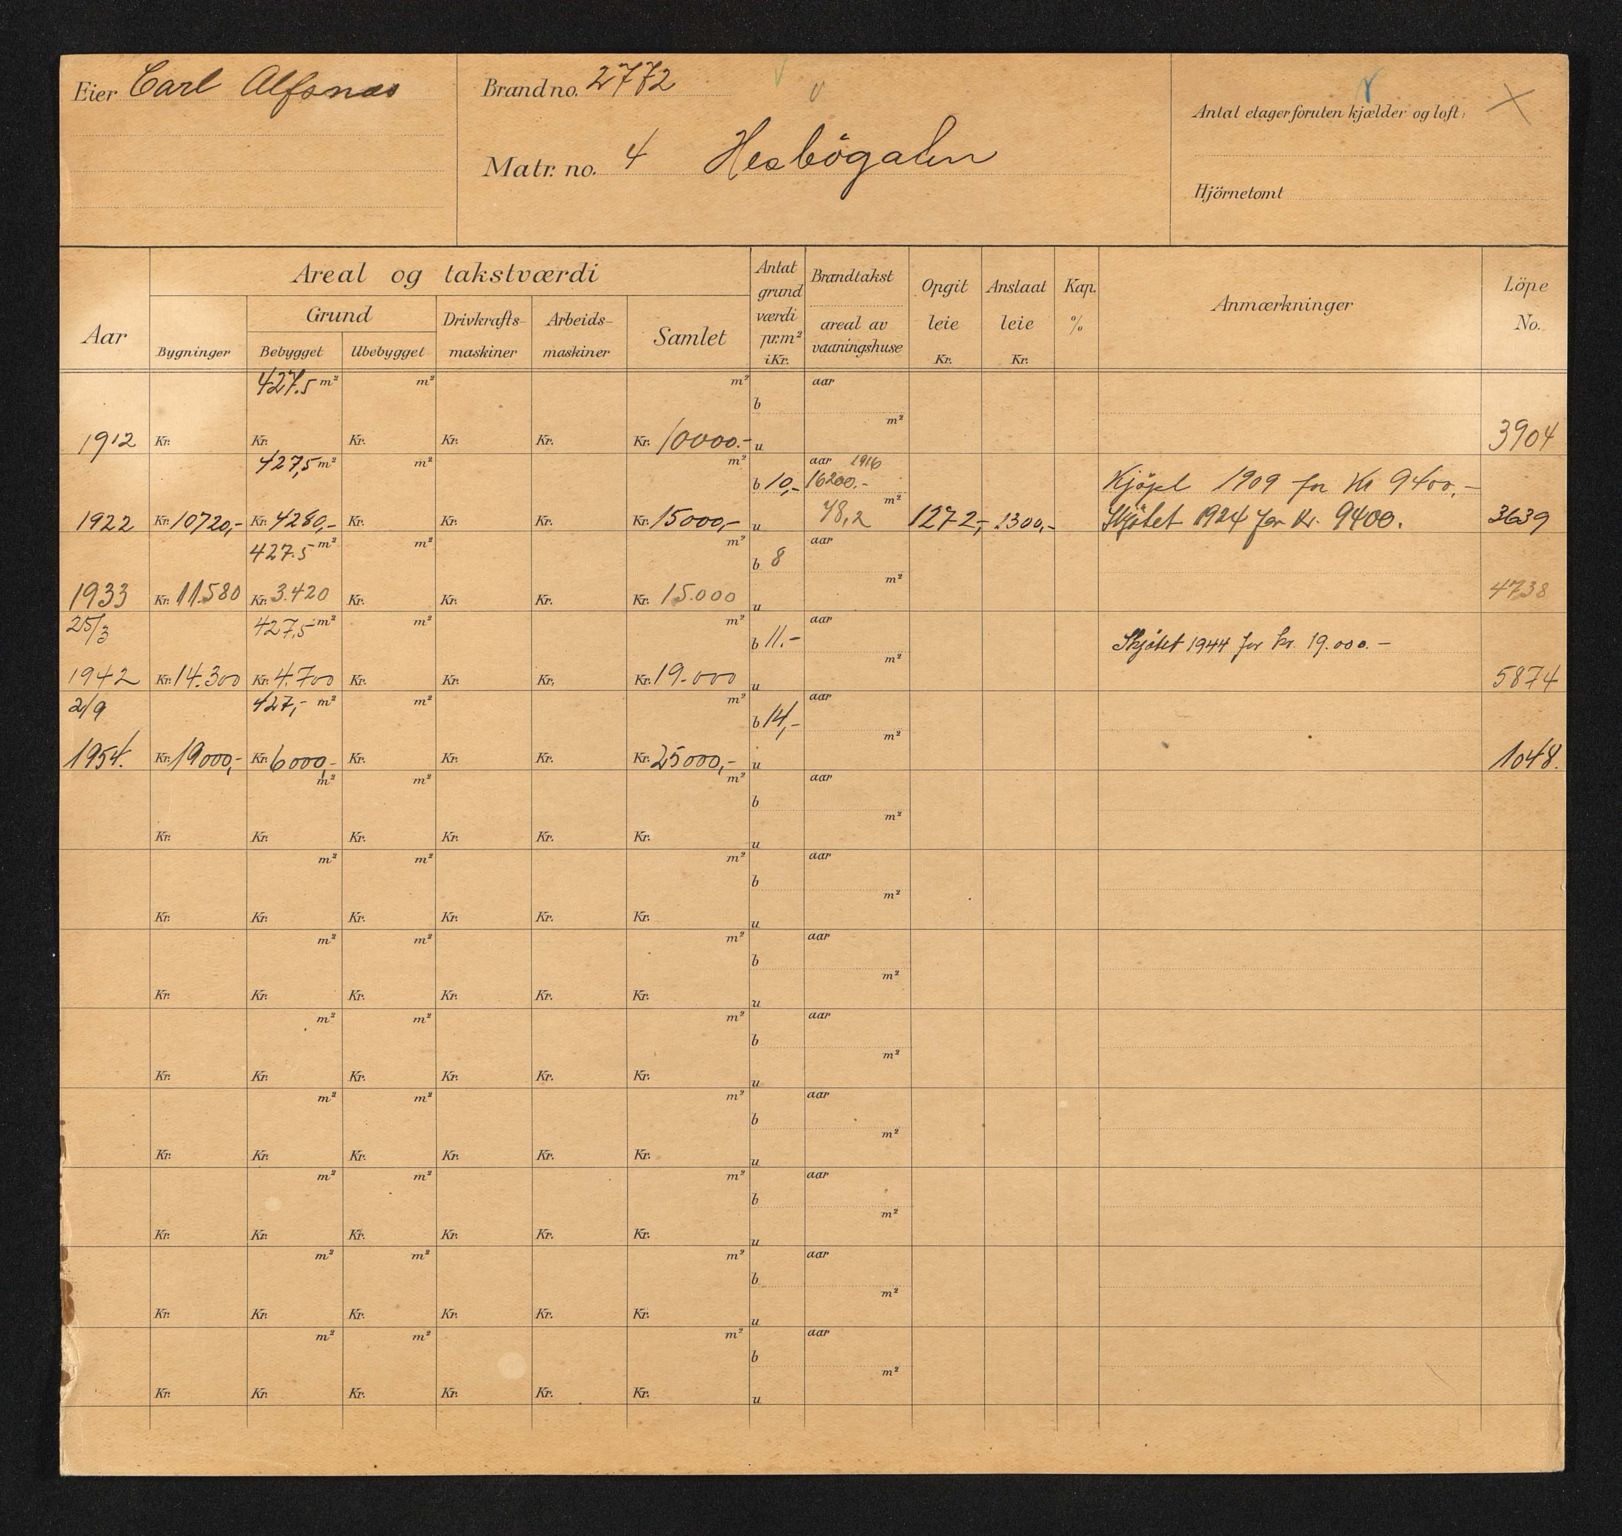 Eier Carl Alfsnes
Brand no. 2772
Matr. no. 4 Hesbøgaten
Antal etager foruten kjælder og loft:
Hjörnetomt
Areal og takstværdi
Aar
Bygninger
Grund
Bebygget
Ubebygget
Drivkrafts-
maskiner
Arbeids-
maskiner
Samlet
Antat
grund
værdi
pr.m²
i Kr.
Brandtakst
areal av
vaaningshuse
Opgit
leie
Kr.
Anslaat
leie
Kr.
Kap.
%
Anmærkninger
Löpe
No.
427.5 m² m² m² aar
b
m²
1912 Kr. Kr. Kr. Kr. Kr. Kr. 10000.- u 3904
427,5 m² m² m² aar 1916
b 10,- 16200.- Kjöpt 1909 for Kr 9400,-
m²
1922 Kr. 10720,- Kr. 4280,- Kr. Kr. Kr. Kr. 15000,- u 78,2 1272,- 1300,- Skjötet 1924 for Kr. 9400. 3639
427.5 m² m² m² aar
b 8
m²
1933 Kr. 11.580 Kr. 3.420 Kr. Kr. Kr. Kr. 15.000 u 4738
25/3 427,5 m² m² m² aar
b 11.- Skjötet 1944 for kr. 19.000.-
m²
1942 Kr. 14.300 Kr. 4.700 Kr. Kr. Kr. Kr. 19.000 u 5874
2/9 427,- m² m² m² aar
b 14,-
m²
1954. Kr. 19000,- Kr. 6000,- Kr. Kr. Kr. Kr. 25000,- u 1048.
m² m² m² aar
b
m²
Kr. Kr. Kr. Kr. Kr. Kr. u
m² m² m² aar
b
m²
Kr. Kr. Kr. Kr. Kr. Kr. u
m² m² m² aar
b
m²
Kr. Kr. Kr. Kr. Kr. Kr. u
m² m² m² aar
b
m²
Kr. Kr. Kr. Kr. Kr. Kr. u
m² m² m² aar
b
m²
Kr. Kr. Kr. Kr. Kr. Kr. u
m² m² m² aar
b
m²
Kr. Kr. Kr. Kr. Kr. Kr. u
m² m² m² aar
b
m²
Kr. Kr. Kr. Kr. Kr. Kr. u
m² m² m² aar
b
m²
Kr. Kr. Kr. Kr. Kr. Kr. u